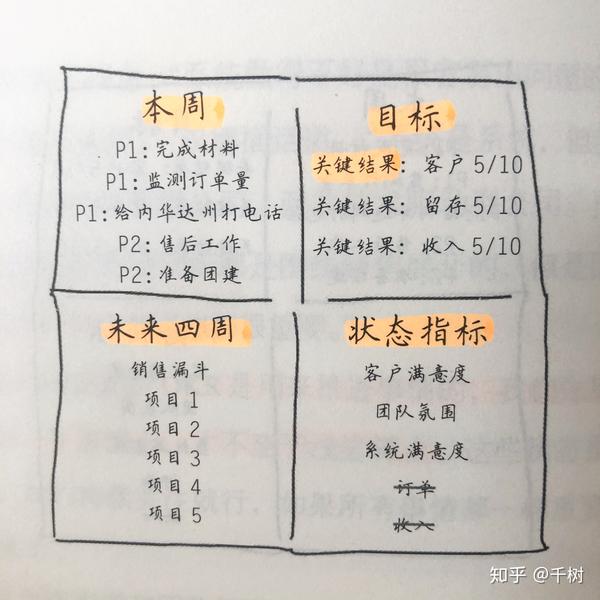 本周
P1:完成材料
P1:监测订单量
P1:给内华达州打电话
P2:售后工作
P2:准备团建
目标
关键结果:客户 5/10
关键结果:留存 5/10
关键结果:收入 5/10
未来四周
销售漏斗
项目 1
项目 2
项目 3
项目 4
项目 5
状态指标
客户满意度
团队氛围
系统满意度
订单
收入
知乎 @千树